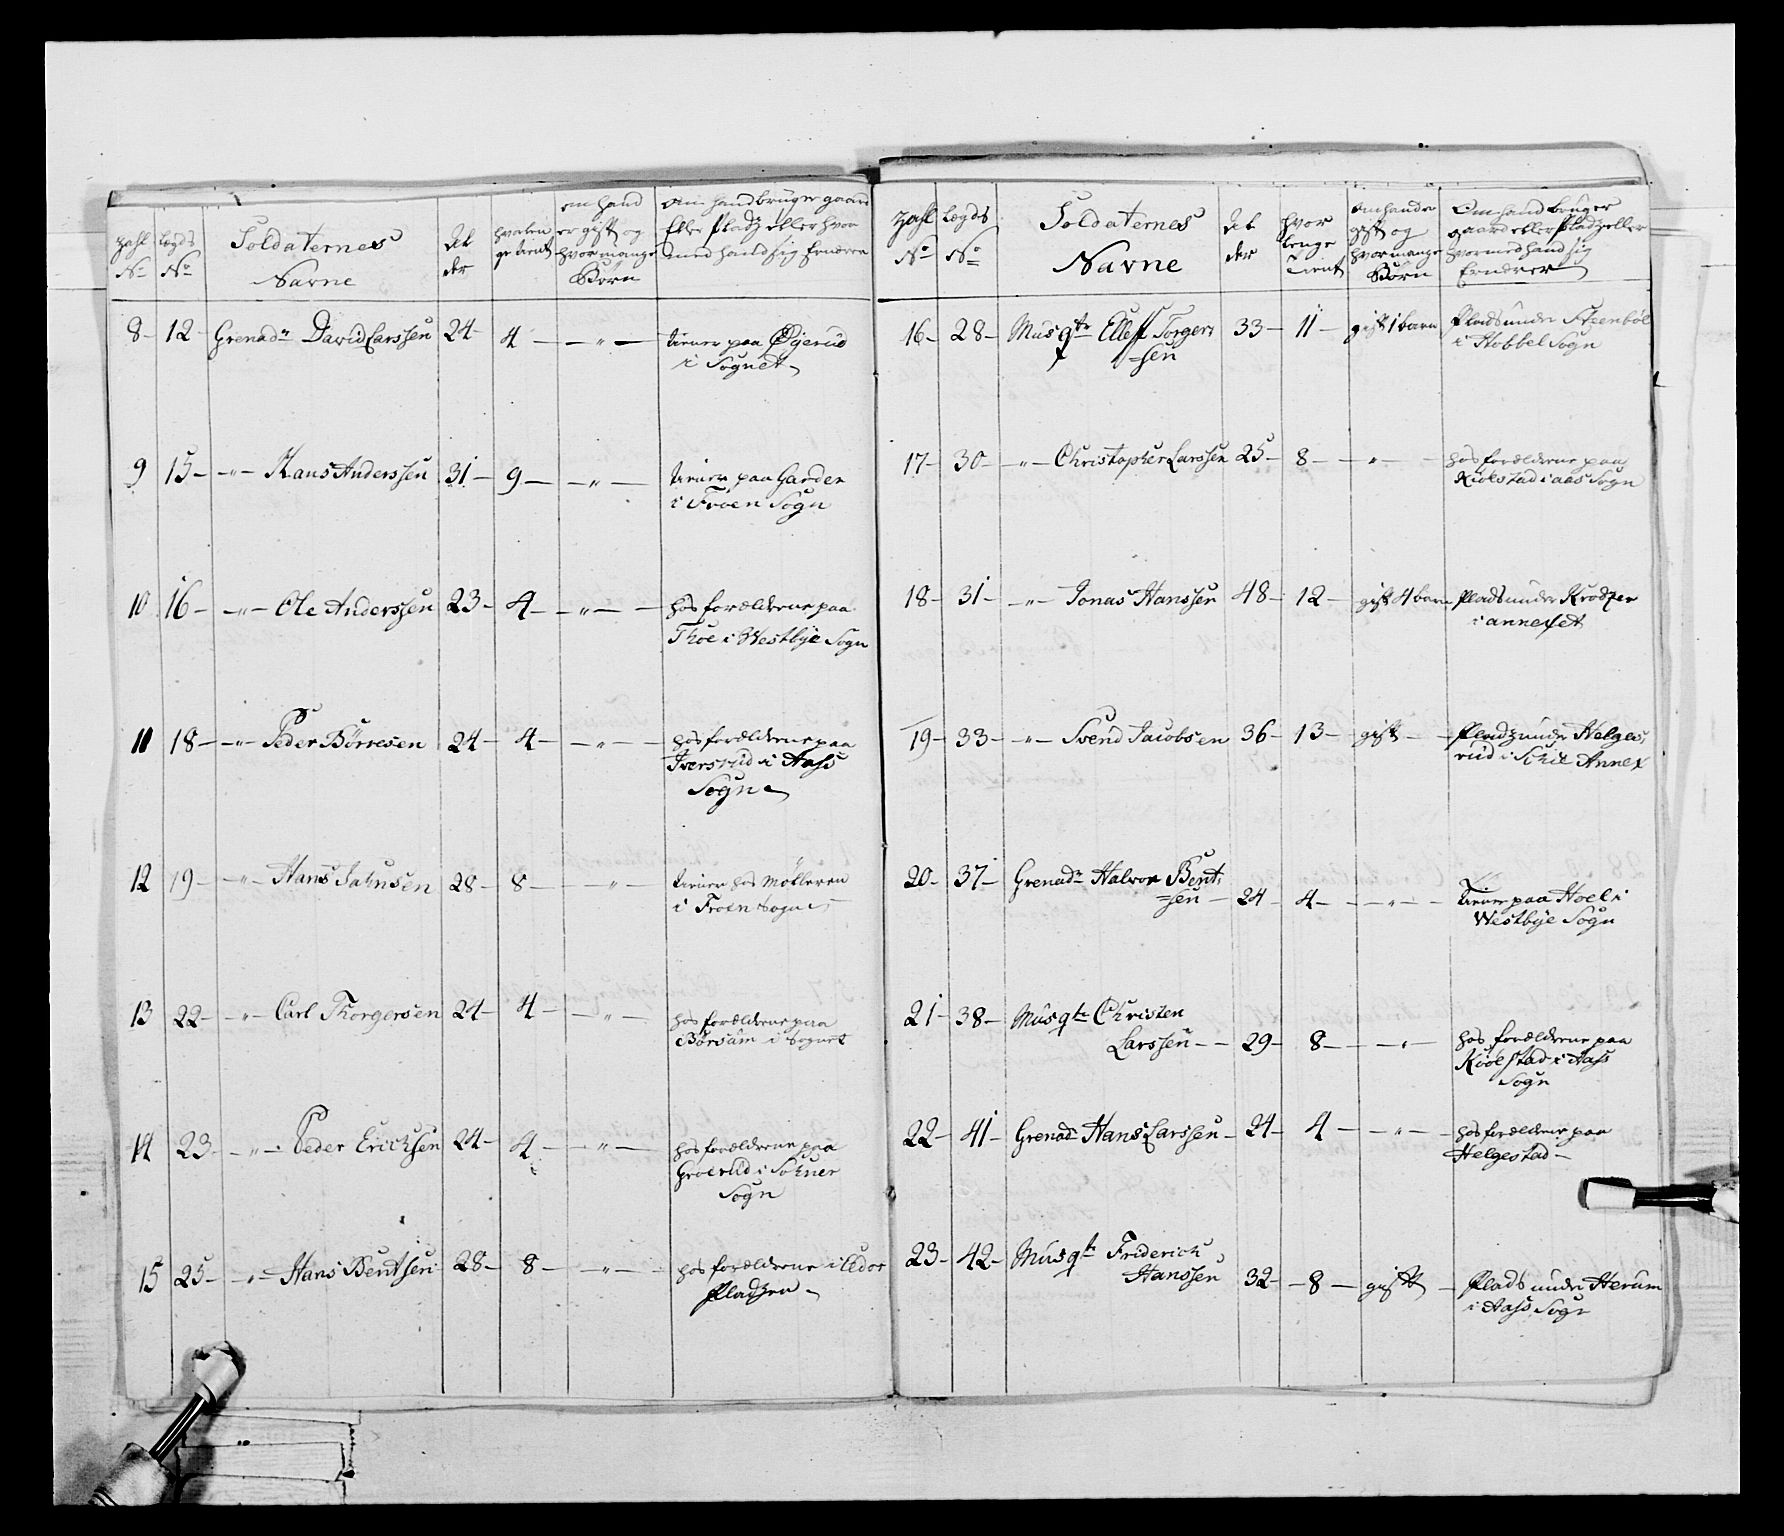 Zahl N° | Legds N° | Soldaternes Navne | Al der | hvor len ge tient | om hand er gift og hvor mange Börn | Om hand bruger gaard Eller Pladz eller hvor med hand sig Ernærer
8 - 12 - Grenadr David Larssen 24 - 4 - — " — tiener paa Øgerud
i Sognet -
9 15 - — " — Hans Anderssen 31 - 9 - — " — tiener paa Garder
i Froen Sogn
10 16 - — " — Ole Anderssen 23 - 4 - — " — hos forældrene paa
Thoe i Westbye Sogn
11 18 - — " — Peder Börresen 24 - 4 - — " — hos forældrene paa
Iversrud i Aass
Sogn
12 19 - — " — Hans Jahnsen 28 - 8 - — " — tiener hos Mölleren
i Froen Sogn
13 22 - — " — Carl Thorgersen 24 - 4 - — " — hos forældrene paa
Börsum i Sognet
14 23 - — " — Peder Ericksen 24 - 4 - — " — hos forældrene paa
Groerud i Sohner
Sogn
15 25 - — " — Hans Bentsen 28 - 8 - — " — hos forældrene i
Pladzen -
Zahl N° | Legds N° | Soldaternes Navne | Al der | hvor lenge Tient | Om hand er gift og hvor mange Börn | Om hand bruger gaard eller Pladz eller hvor med hand sig Ernærer
16 - 28 - Musqtr Elleff Torger
=sen 33 - 11 - gift 1 barn Plads under Steenböl
i Hobbel Sogn
17 - 30 - — " — Christopher Larssen 25 - 8 - — " — hos forældrene paa
Kiölstad i aas Sogn
18 - 31 - — " — Jonas Hanssen 48 - 12 - gift 4 barn Plads under Krodzer
i annexet
19 - 33 - — " — Svend Jacobsen 36 - 13 - gift - Pladz under Helges
rud i Schie Annex
20 - 37 - Grenadr Halvor Bent
=sen - 24 - 4 - — " — tiener paa Hoel i
Westbye Sogn
21 - 38 - Musqtr Christen
Larssen - - 29 - 8 - — " — hos forældrene paa
Kiölstad i Aass
Sogn
22 - 41 - Grenadr Hans Larssen - 24 - 4 - — " — hos forældrene paa
Helgestad -
23 - 42 - Musqtr Friderich
Hanssen 32 - 8 - gift - Plads under Herum
i Aass Sogn